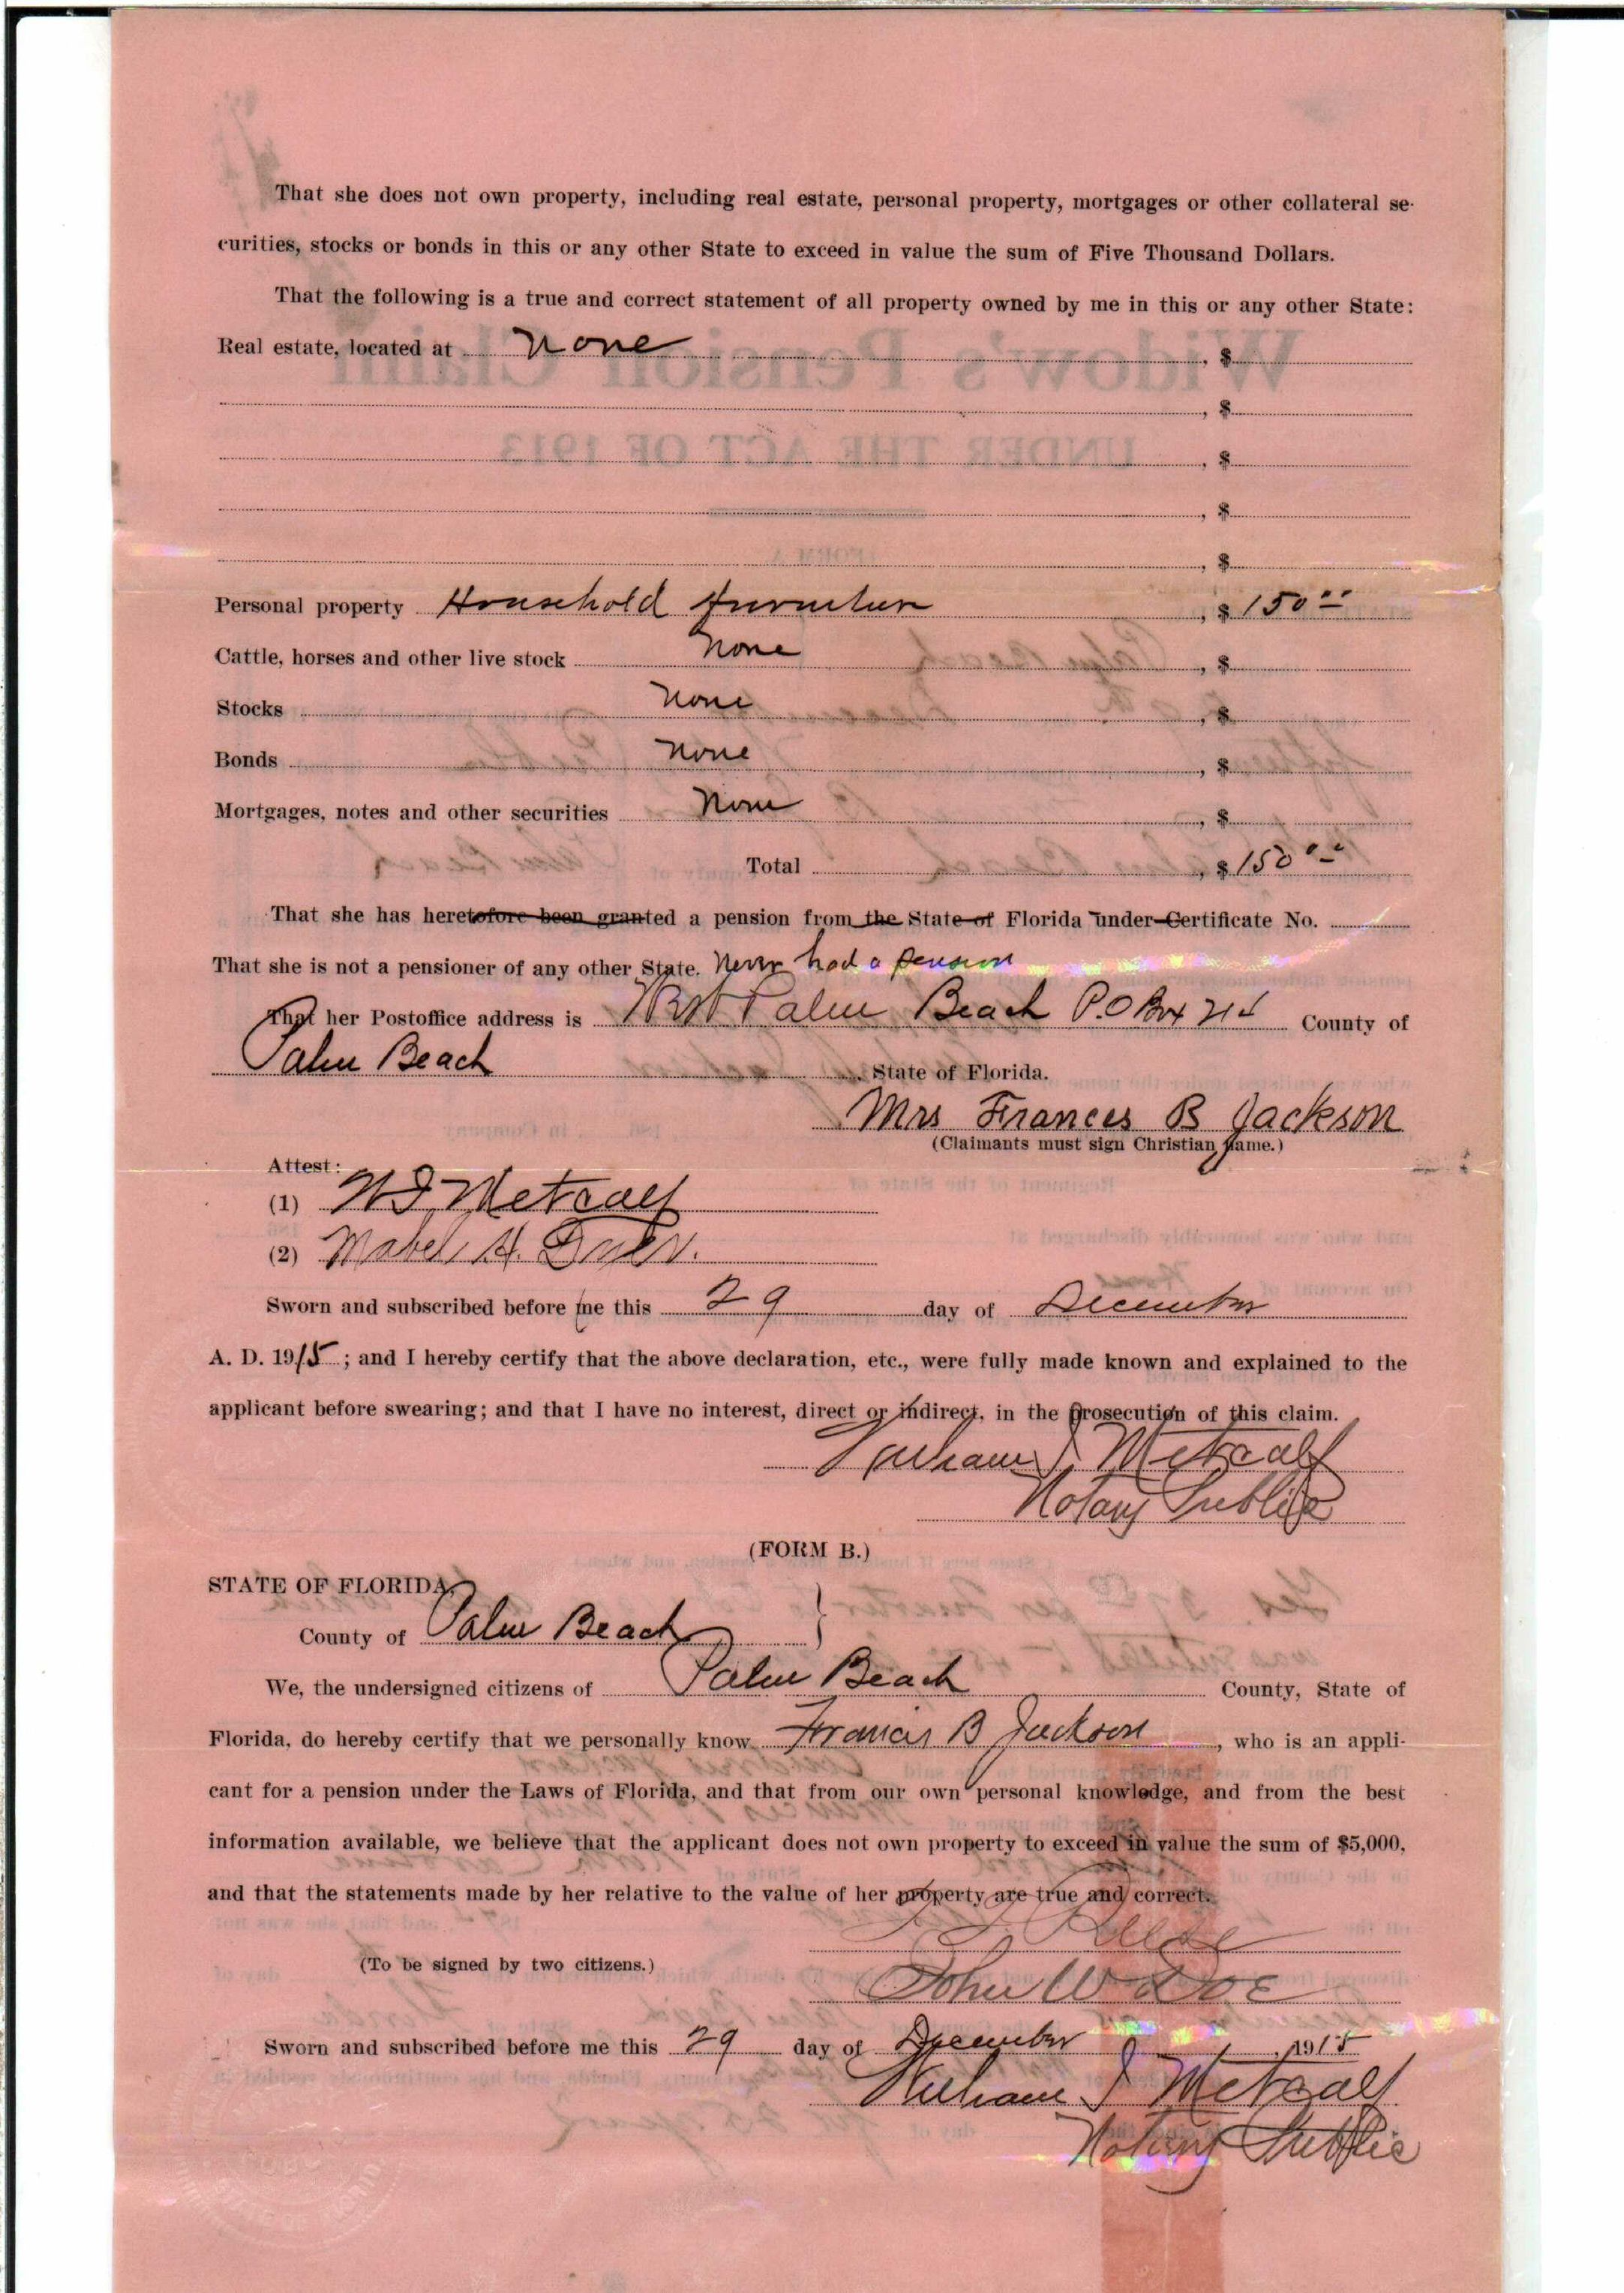 That she does not own property, including real estate, personal property, mortgages or other collateral se-
curities, stocks or bonds in this or any other State to exceed in value the sum of Five Thousand Dollars.
That the following is a true and correct statement of all property owned by me in this or any other State:
Real estate, located at None , $
, $
, $
, $
, $
Personal property Household furniture , $ 150 00
Cattle, horses and other live stock None , $
Stocks None , $
Bonds None , $
Mortgages, notes and other securities None , $
Total , $ 150 00
That she has heretofore been granted a pension from the State of Florida under Certificate No.
That she is not a pensioner of any other State. Never had a pension
That her Postoffice address is West Palm Beach P.O Box 214 County of
Palm Beach , State of Florida.
Mrs Frances B Jackson
(Claimants must sign Christian name.)
Attest:
(1) W I Metcalf
(2) Mabel H.
Sworn and subscribed before me this 29 day of December
A. D. 1915 ; and I hereby certify that the above declaration, etc., were fully made known and explained to the
applicant before swearing; and that I have no interest, direct or indirect, in the prosecution of this claim.
William I Metcalf
Notary Public
(FORM B.)
STATE OF FLORIDA,
County of Palm Beach }
We, the undersigned citizens of Palm Beach County, State of
Florida, do hereby certify that we personally know Francis B Jackson , who is an appli-
cant for a pension under the Laws of Florida, and that from our own personal knowledge, and from the best
information available, we believe that the applicant does not own property to exceed in value the sum of $5,000,
and that the statements made by her relative to the value of her property are true and correct.
(To be signed by two citizens.)
John W Doe
Sworn and subscribed before me this 29 day of December , 1915
William I Metcalf
Notary Public